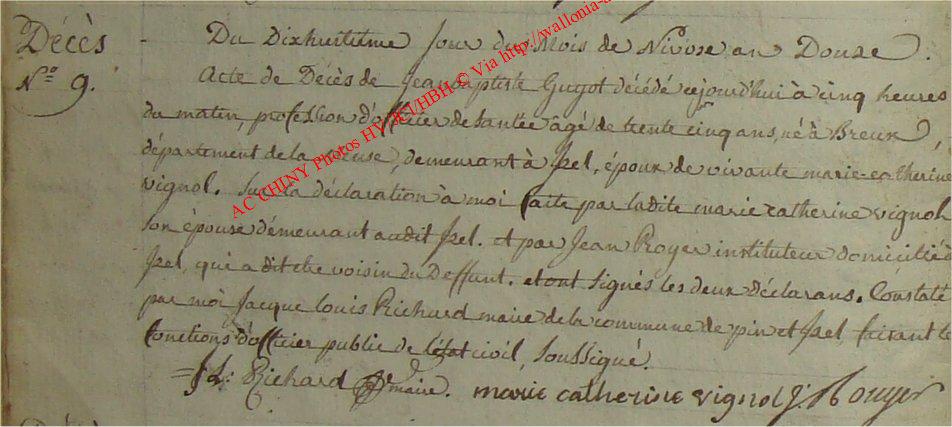 Décès
N.º 9.
Du Dixhuitième Jour du Mois de Nivose an Douze.
Acte de Décès de Jean baptiste Guyot décédé cejourd'hui à cinq heures
du matin, profession d'officier de Santée âgé de trente cinq ans né à Breux,
département de la Meuse, demeurant à Izel, époux de vivante marie catherine
vignol. Sur la déclaration à moi faite par ladite marie catherine vignol
son épouse démeurant audit Izel. et par Jean Royer instituteur domicilié à
Izel, qui a dit etre voisin du Deffunt. et ont signés les deux déclarans. Constaté
par moi Jacque Louis Richard maire de la commune de pin et Izel faisant les
fonctions d'officier public de l'état civil, Soussigné.
J L: Richard maire. marie catherine vignol J. Rouyer
AC CHINY Photos HV/KI/HBH © Via http://wallonia-a